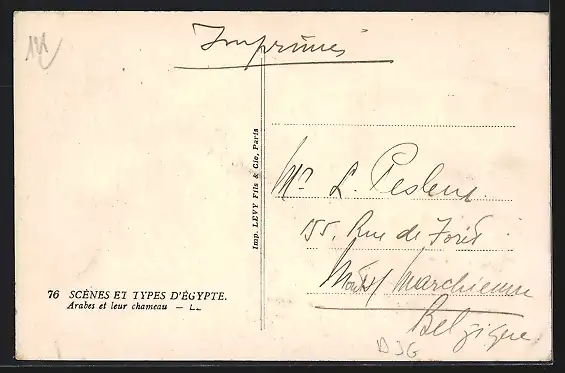 Imprimés
Imp. LEVY Fils & Cie, Paris
Mr L.
155, Rue de Forêt
Marchienne
Belgique
76 SCÈNES ET TYPES D'ÉGYPTE.
Arabes et leur chameau — LL